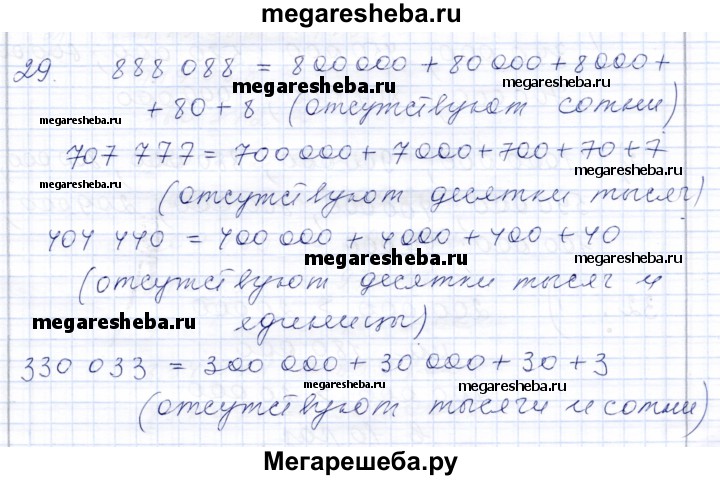 megaresheba.ru
29. 888 088 = 800 000 + 80 000 + 8000 +
megaresheba.ru
megaresheba.ru
megaresheba.ru
+ 80 + 8 (отсутствуют сотни)
707 777 = 700 000 + 7 000 + 700 + 70 + 7
megaresheba.ru
megaresheba.ru
(отсутствуют десятки тысяч)
404 440 = 400 000 + 4000 + 400 + 40
megaresheba.ru
(отсутствуют десятки тысяч и
megaresheba.ru
megaresheba.ru
единицы)
330 033 = 300 000 + 30 000 + 30 + 3
megaresheba.ru
megaresheba.ru
(отсутствуют тысячи и сотни)
Мегарешеба.ру